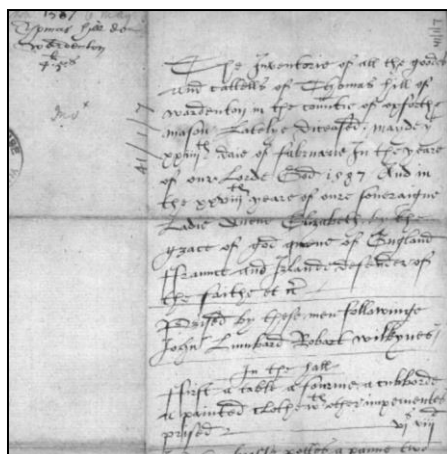 Thomas Hill de
Wardenton
The Inventorie of all the goods
and cattells of Thomas Hill of
wardenton in the countie of oxforth
mason Latelye deceased, mayde ye
xxiiith daie of Februarie In the yeare
of our Lorde God 1587 And in
the xxviiith yeare of oure soveraigne
Ladie Quene Elizabeth by the
grace of god quene of England
Fraunce and Irlande defender of
the faithe etc
Prised by these men followinge
John Lumbard Robart wilkyns
In the hall
First a table a fourme a cubborde
a painted clothe wth other impementes
prised vis viiid